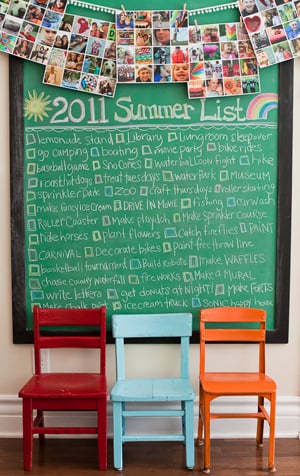 2011 Summer List
lemonade stand Library livingroom sleepover
go camping boating movie party bike rides
baseball game Sno Cones water balloon fight hike
roast hotdogs treat tuesdays water park Museum
sprinkler park Zoo craft thursdays roller skating
make force ice cream DRIVE IN MOVIE fishing carwash
Roller Coaster Make playdoh Make Sprinkler Course
ride horses plant flowers Catch fireflies PAINT
CARNIVAL Decorate bikes paint free throw line
basketball tournament Build Robots make WAFFLES
chase county waterfall fire works Make a MURAL
write letters get donuts at NIGHT! Make FORTS
Make chalk ice cream truck SONIC happy hour